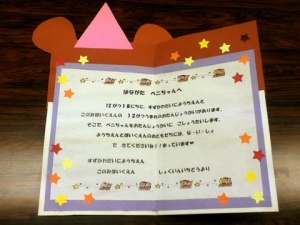 はながた べにちゃんへ
12がつ1まにちに、すずかわだいにようちえんと
このみほいくえんの 12がつうまれのおたんじょうかいがあります。
そこで、べにちゃんもおたんじょうかいに ごしょうたいします。
ようちえんとほいくえんのおともだちには、な・い・しょ
で きてくださいね!!まっています♥
すずかわだいにようちえん
このみほいくえん しょくいんいちどうより